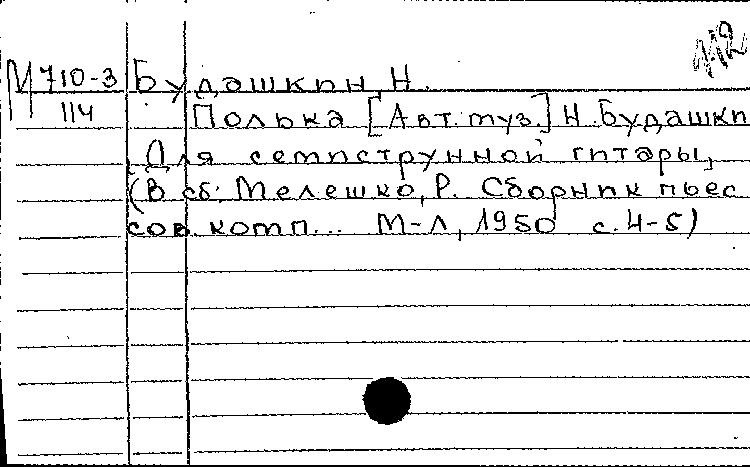 112
М 710-3 Будашкин, Н.
114 Полька [Авт. муз.] Н. Будашкин
Для семиструнной гитары,
(В сб: Мелешко, Р. Сборник пьес
сов. комп... М-Л, 1950 с. 4-5)